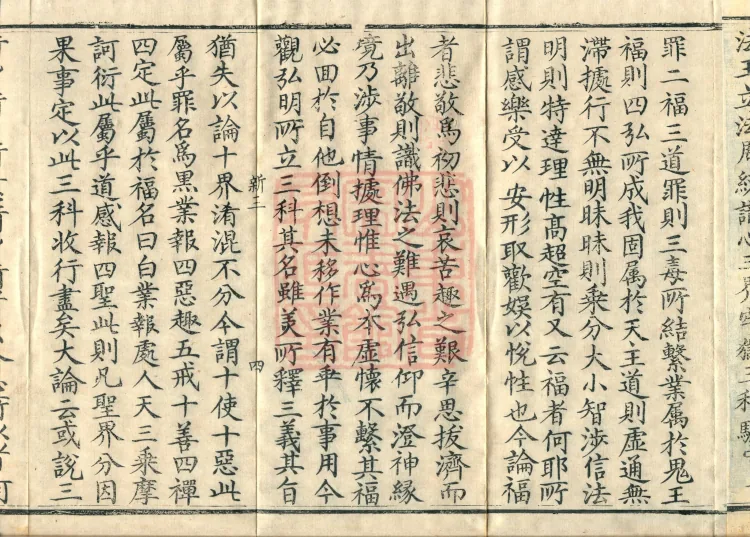 罪二福三道罪則三毒所結繫業属於鬼王
福則四弘所成我固属於天主道則虛通無
滯據行不無明昧昧則乘分大小智涉信法
明則特達理性髙超空有又云福者何耶所
謂感樂受以安形取歡娱以恱性也今論福
者悲敬爲初悲則哀苦趣之艱辛思拔濟而
出離敬則識佛法之難遇弘信仰而澄神縁
境乃涉事情據理惟心爲本虛懷不繫其福
必回於自他倒想未移作業有乖於事用今
觀弘明所立三科其名雖羙所釋三義其旨
猶失以論十界淆混不分今謂十使十惡此
屬乎罪名爲黒業報四惡趣五戒十善四禪
四定此屬於福名曰白業報處人天三乘摩
訶衍此屬乎道感報四聖此則凡聖界分因
果事定以此三科收行盡矣大論云或說三
新三 四